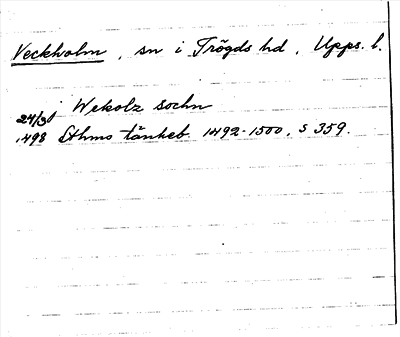 Veckholm, sn i Trögds hd, Upps. l.
i Wekolz sochn
24/3
1498 Sthms tänkeb. 1492-1500, s 359.